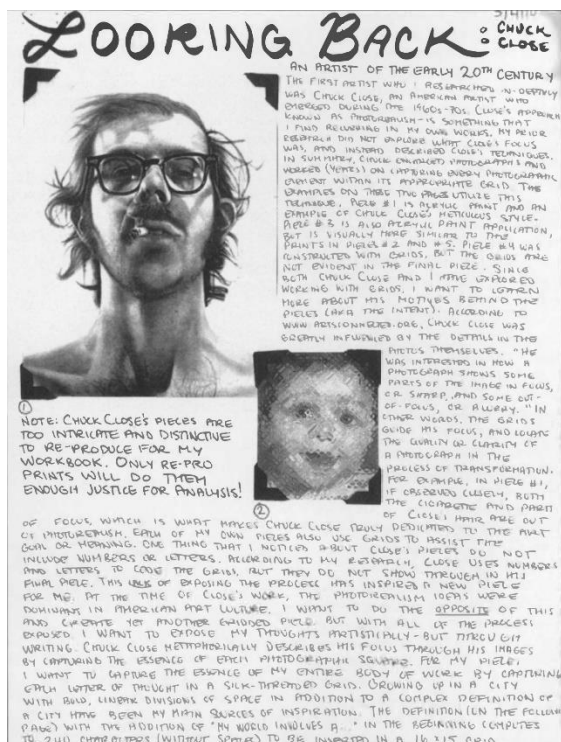 LOOKING BACK
: CHUCK
: CLOSE
AN ARTIST OF THE EARLY 20TH CENTURY
THE FIRST ARTIST WHO I RESEARCHED IN-DEPTHLY
WAS CHUCK CLOSE, AN AMERICAN ARTIST WHO
EMERGED DURING THE 1960s-70s. CLOSE'S APPROACH
KNOWN AS PHOTOREALISM-IS SOMETHING THAT
I FIND RECURRING IN MY OWN WORKS. MY PRIOR
RESEARCH DID NOT EXPLORE WHAT CLOSE'S FOCUS
WAS, AND INSTEAD DESCRIBED CLOSE'S TECHNIQUES.
IN SUMMARY, CHUCK ENLARGED PHOTOGRAPHS AND
WORKED (YEARS) ON CAPTURING EVERY PHOTOGRAPHIC
ELEMENT WITHIN ITS APPROPRIATE GRID. THE
EXAMPLES ON THESE TWO PAGES UTILIZE THIS
TECHNIQUE. PIECE #1 IS ACRYLIC PAINT AND AN
EXAMPLE OF CHUCK CLOSE'S METICULOUS STYLE.
PIECE #3 IS ALSO ACRYLIC PAINT APPLICATION,
BUT IS VISUALLY MORE SIMILAR TO THE
PRINTS IN PIECES #2 AND #5. PIECE #4 WAS
CONSTRUCTED WITH GRIDS, BUT THE GRIDS ARE
NOT EVIDENT IN THE FINAL PIECE. SINCE
BOTH CHUCK CLOSE AND I HAVE EXPLORED
WORKING WITH GRIDS, I WANT TO LEARN
MORE ABOUT HIS MOTIVES BEHIND THE
PIECES (AKA THE INTENT). ACCORDING TO
WWW.ARTSCONNECTED.ORG, CHUCK CLOSE WAS
GREATLY INFLUENCED BY THE DETAILS IN THE
PHOTOS THEMSELVES. "HE
WAS INTERESTED IN HOW A
PHOTOGRAPH SHOWS SOME
PARTS OF THE IMAGE IN FOCUS,
OR SHARP, AND SOME OUT-
OF-FOCUS, OR BLURRY." IN
OTHER WORDS, THE GRIDS
GUIDE HIS FOCUS, AND LOCATE
THE QUALITY OR CLARITY OF
A PHOTOGRAPH IN THE
PROCESS OF TRANSFORMATION.
FOR EXAMPLE, IN PIECE #1,
IF OBSERVED CLOSELY, BOTH
THE CIGARETTE AND PART
OF CLOSE'S HAIR ARE OUT
①
NOTE: CHUCK CLOSE'S PIECES ARE
TOO INTRICATE AND DISTINCTIVE
TO RE-PRODUCE FOR MY
WORKBOOK. ONLY RE-PRO
PRINTS WILL DO THEM
ENOUGH JUSTICE FOR ANALYSIS!
②
OF FOCUS, WHICH IS WHAT MAKES CHUCK CLOSE TRULY DEDICATED TO THE ART
OF PHOTOREALISM. EACH OF MY OWN PIECES ALSO USE GRIDS TO ASSIST THE
GOAL OR MEANING. ONE THING THAT I NOTICED ABOUT CLOSE'S PIECES DO NOT
INCLUDE NUMBERS OR LETTERS. ACCORDING TO MY RESEARCH, CLOSE USES NUMBERS
AND LETTERS TO CODE THE GRIDS, BUT THEY DO NOT SHOW THROUGH IN HIS
FINAL PIECE. THIS OF EXPOSING THE PROCESS HAS INSPIRED A NEW PIECE
FOR ME. AT THE TIME OF CLOSE'S WORK, THE PHOTOREALISM IDEAS WERE
DOMINANT IN AMERICAN ART CULTURE. I WANT TO DO THE OPPOSITE OF THIS
AND CREATE YET ANOTHER GRIDDED PIECE. BUT WITH ALL OF THE PROCESS
EXPOSED. I WANT TO EXPOSE MY THOUGHTS ARTISTICALLY-BUT THROUGH
WRITING. CHUCK CLOSE METAPHORICALLY DESCRIBES HIS FOCUS THROUGH HIS IMAGES
BY CAPTURING THE ESSENCE OF EACH PHOTOGRAPHIC SQUARE. FOR MY PIECE,
I WANT TO CAPTURE THE ESSENCE OF MY ENTIRE BODY OF WORK BY CAPTURING
EACH LETTER OF THOUGHT IN A SILK-THREADED GRID. GROWING UP IN A CITY
WITH BOLD, LINEAR DIVISIONS OF SPACE IN ADDITION TO A COMPLEX DEFINITION OF
A CITY HAVE BEEN MY MAIN SOURCES OF INSPIRATION. THE DEFINITION (ON THE FOLLOWING
PAGE) WITH THE ADDITION OF "MY WORLD INVOLVES A..." IN THE BEGINNING COMPUTES
TO 240 CHARACTERS (WITHOUT SPACES) TO BE INSERTED IN A 16 X 15 GRID